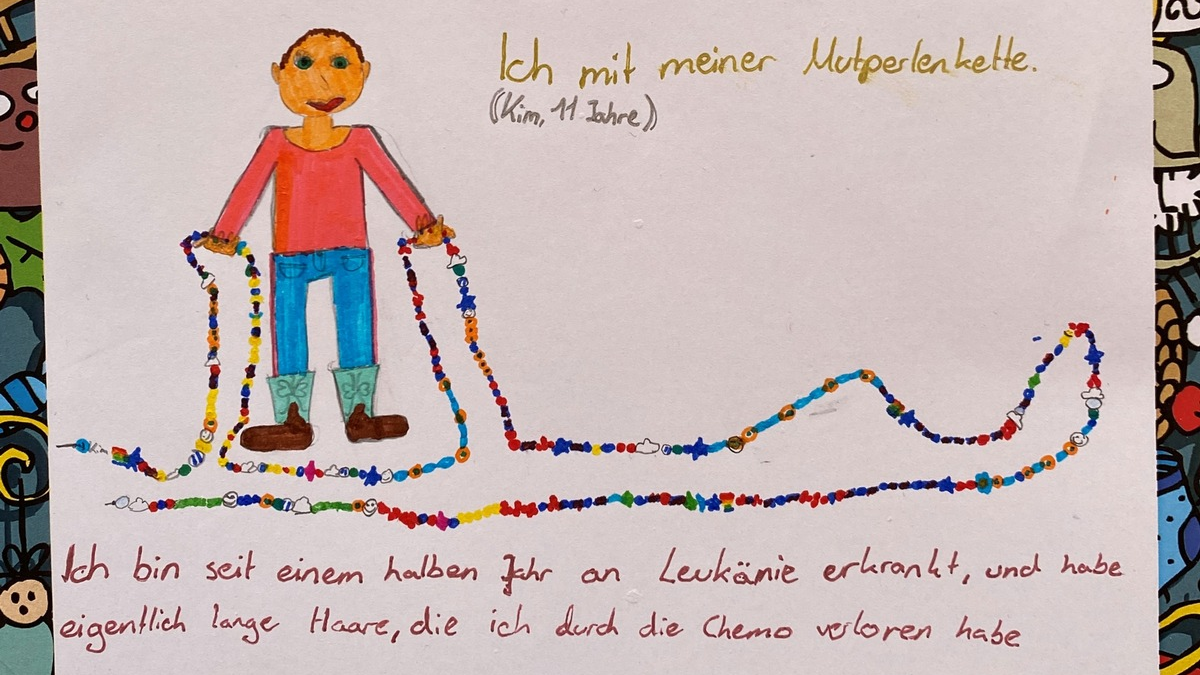 Ich mit meiner Mutperlenkette.
(Kim, 11 Jahre)
Kim
Ich bin seit einem halben Jahr an Leukämie erkrankt, und habe
eigentlich lange Haare, die ich durch die Chemo verloren habe